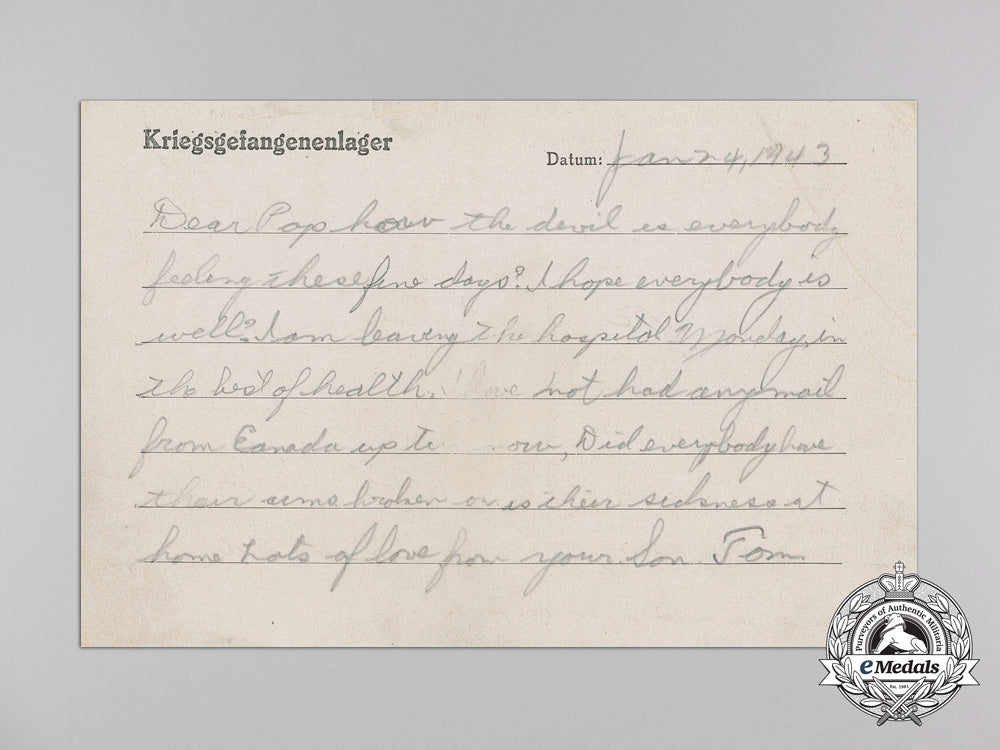 Kriegsgefangenenlager
Datum: Jan 24, 1943
Dear Pop how the devil is everybody
feeling these fine days? I hope everybody is
well? I am leaving the hospital Monday, in
the best of health. I have not had any mail
from Canada up to now, Did everybody have
their arms broken or is their sickness at
home Lots of love from your Son Tom
Purveyors of Authentic Militaria
eMedals
Est. 1985